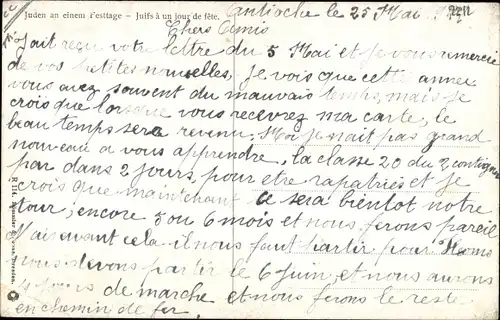 Juden an einem Festtage - Juifs à un jour de fête.
Antioche le 25 Mai
Chers Amis
J'ait reçu votre lettre du 5 Mai et je vous remercie
de vos petites nouvelles, Je vois que cette année
vous avez souvent du mauvais temps, mais je
crois que lorsque vous recevrez ma carte, le
beau temps sera revenu. Moi je n'ait pas grand
nouveau a vous apprendre, la classe 20 du 2 contigent
par dans 2 jours, pour etre rapatriés et je
crois que maintenant ce sera bientot notre
tour, encore 5 ou 6 mois et nous ferons pareil
Mais avant cela il nous faut partir pour Homs
nous devons partir le 6 Juin, et nous aurons
4 jours de marche et nous ferons le reste
en chemin de fer,
R 1114
Dresden.